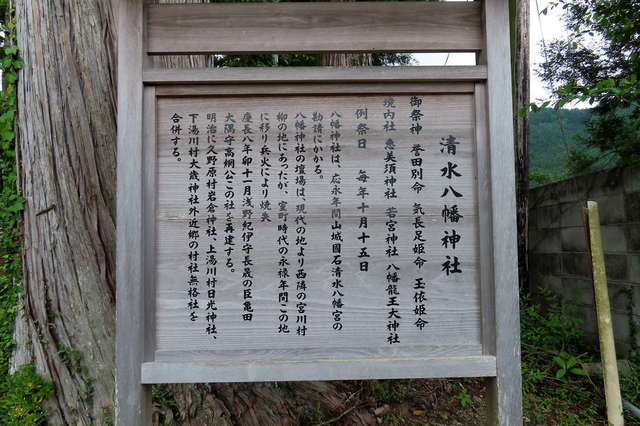 清水八幡神社
御祭神　誉田別命　気長足姫命　玉依姫命
境内社　恵美須神社　若宮神社　八幡龍王大神社
例祭日　毎年十月十五日
八幡神社は、応永年間山城国石清水八幡宮の
勧請にかかる。
八幡神社の壇場は、現代の地より西隣の宮川村
柳の地にあったが、室町時代の永禄年間この地
に移り兵火により焼失
慶長八年卯十一月浅野紀伊守長晟の臣亀田
大隅守高綱公この社を再建する。
明治に久野原村岩倉神社、上湯川村日光神社、
下湯川村大歳神社外近郷の村社無格社を
合併する。